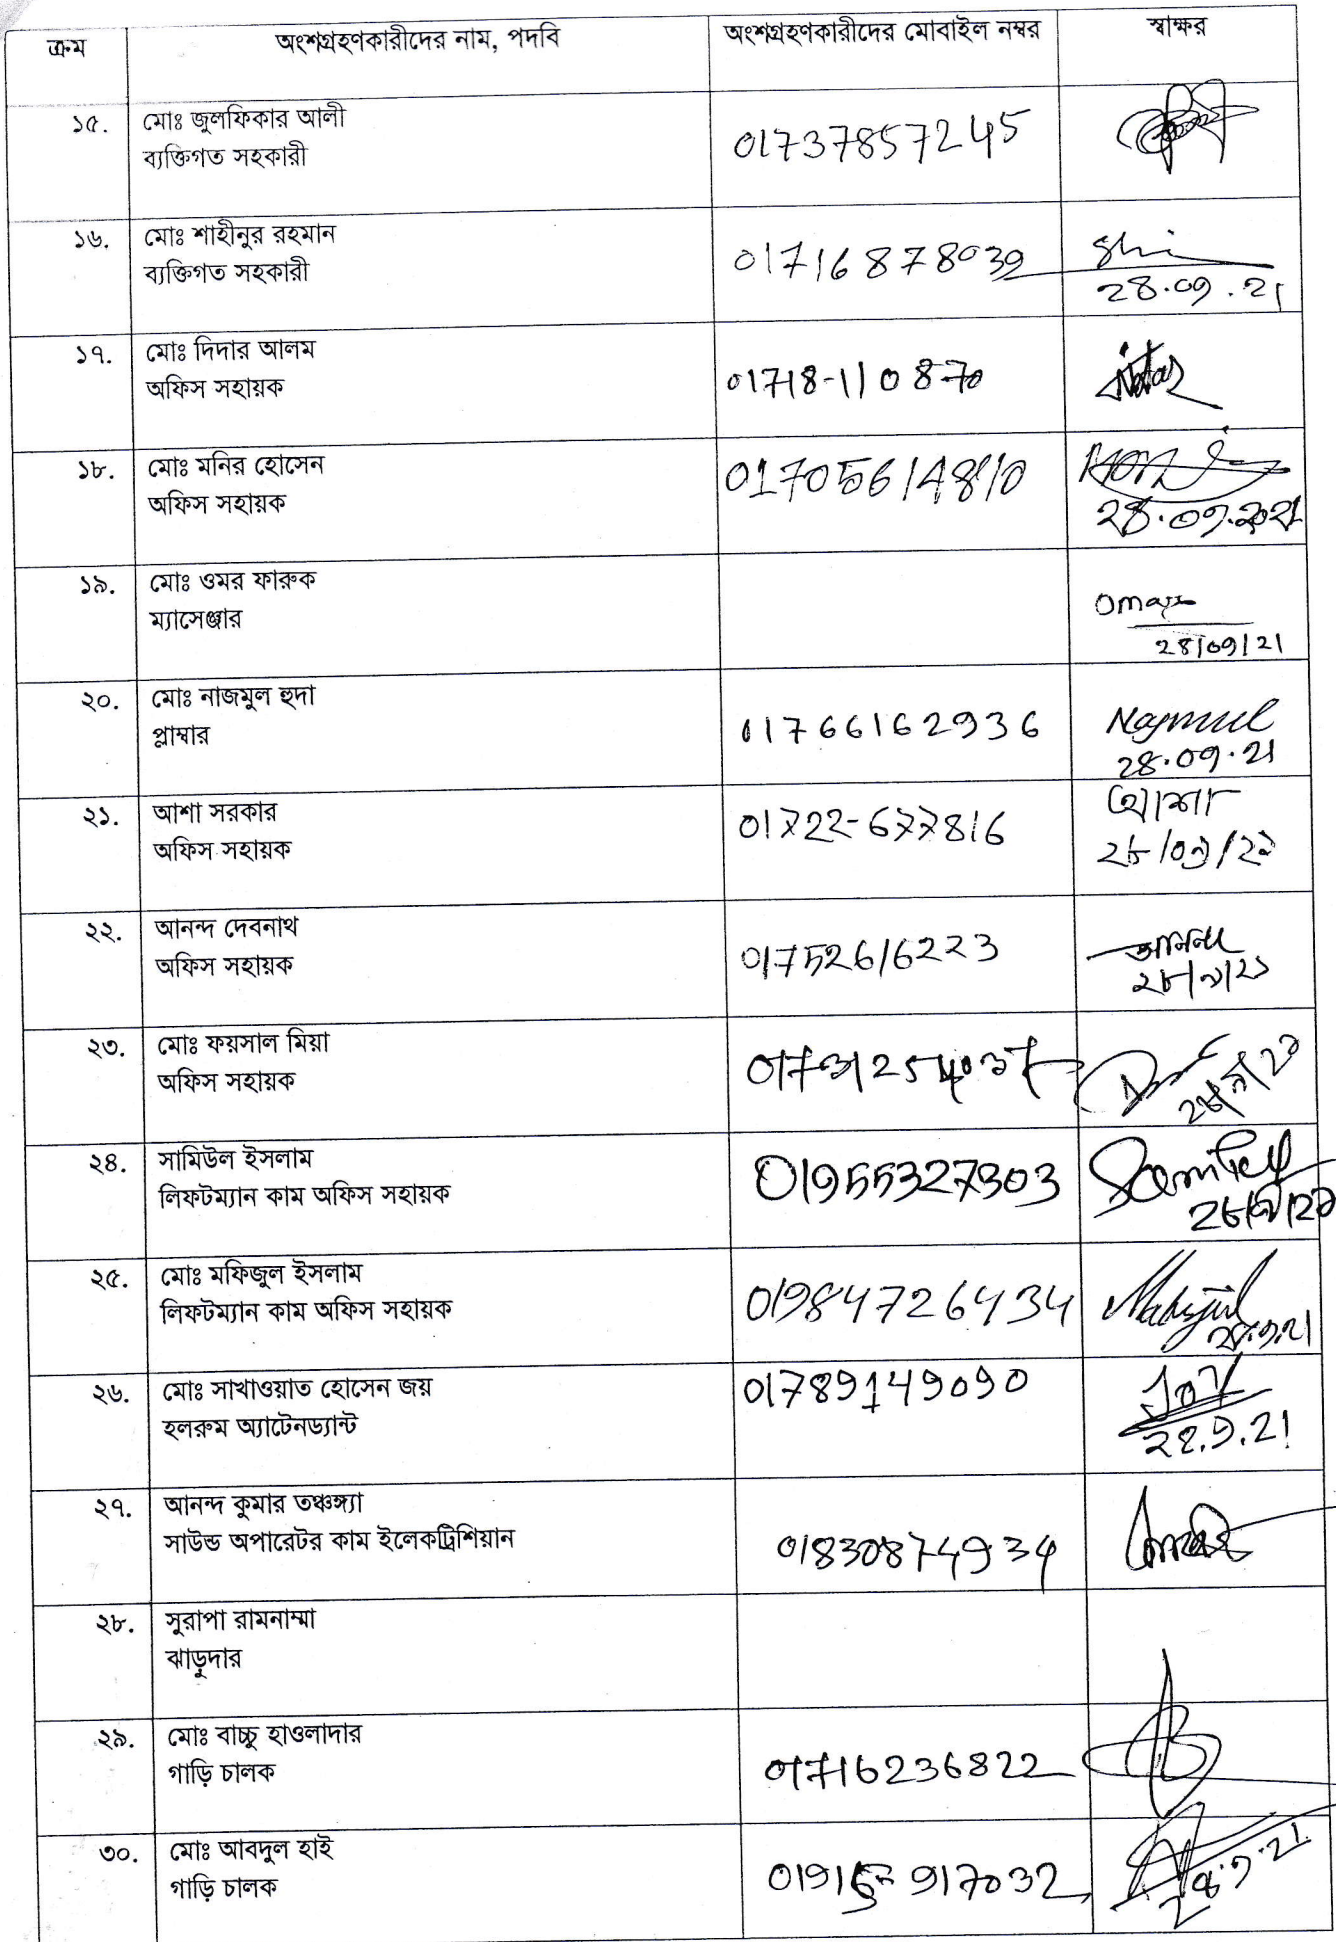 ক্রম অংশগ্রহণকারীদের নাম, পদবি অংশগ্রহণকারীদের মোবাইল নম্বর স্বাক্ষর
১৫. মোঃ জুলফিকার আলী
ব্যক্তিগত সহকারী 01737857245
১৬. মোঃ শাহীনুর রহমান
ব্যক্তিগত সহকারী 01716878039 Shi
28.09.21
১৭. মোঃ দিদার আলম
অফিস সহায়ক 01718-110870
১৮. মোঃ মনির হোসেন
অফিস সহায়ক 01705614810
28.09.2021
১৯. মোঃ ওমর ফারুক
ম্যাসেঞ্জার Omar
28/09/21
২০. মোঃ নাজমুল হুদা
প্লাম্বার 01766162936 Najmul
28.09.21
২১. আশা সরকার
অফিস সহায়ক 01722-677816 আশা
২৮/০৯/২১
২২. আনন্দ দেবনাথ
অফিস সহায়ক 01752616223 আনন্দ
২৮/৯/২১
২৩. মোঃ ফয়সাল মিয়া
অফিস সহায়ক 01731254037
২৮/৯/২১
২৪. সামিউল ইসলাম
লিফটম্যান কাম অফিস সহায়ক 01955327303 Samiul
২৮/৯/২১
২৫. মোঃ মফিজুল ইসলাম
লিফটম্যান কাম অফিস সহায়ক 01984726434
28.9.21
২৬. মোঃ সাখাওয়াত হোসেন জয়
হলরুম অ্যাটেনড্যান্ট 01789149090 Joy
28.9.21
২৭. আনন্দ কুমার তঞ্চঙ্গ্যা
সাউন্ড অপারেটর কাম ইলেকট্রিশিয়ান 01830874934
২৮. সুরাপা রামনাম্মা
ঝাড়ুদার
২৯. মোঃ বাচ্চু হাওলাদার
গাড়ি চালক 01716236822
৩০. মোঃ আবদুল হাই
গাড়ি চালক 01915-917032
28.9.21